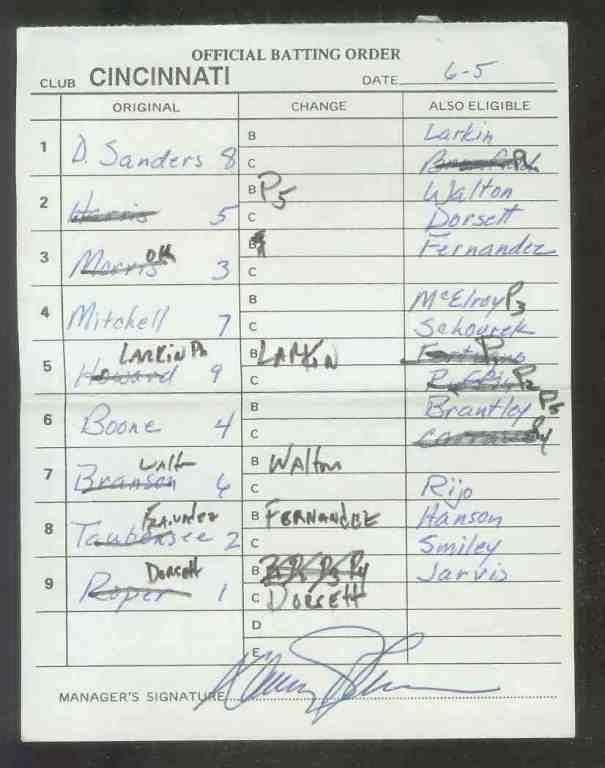 OFFICIAL BATTING ORDER
CLUB CINCINNATI DATE 6-5
ORIGINAL CHANGE ALSO ELIGIBLE
1 D. Sanders 8 B Larkin
C
2 Harris 5 B P5 Walton
C Dorsett
3 Morris 3 B Fernandez
C
4 Mitchell 7 B McElroy P3
C Schourek
LARKIN
5 Howard 9 B LARKIN P1
C P2
6 Boone 4 B Brantley P5
C Carrasco P4
Walt
7 Branson 6 B Walton
C Rijo
8 Taubensee 2 B FERNANDEZ Hanson
C Smiley
Dorsett
9 Roper 1 B P3 P4 Jarvis
C DORSETT
D
E
MANAGER'S SIGNATURE